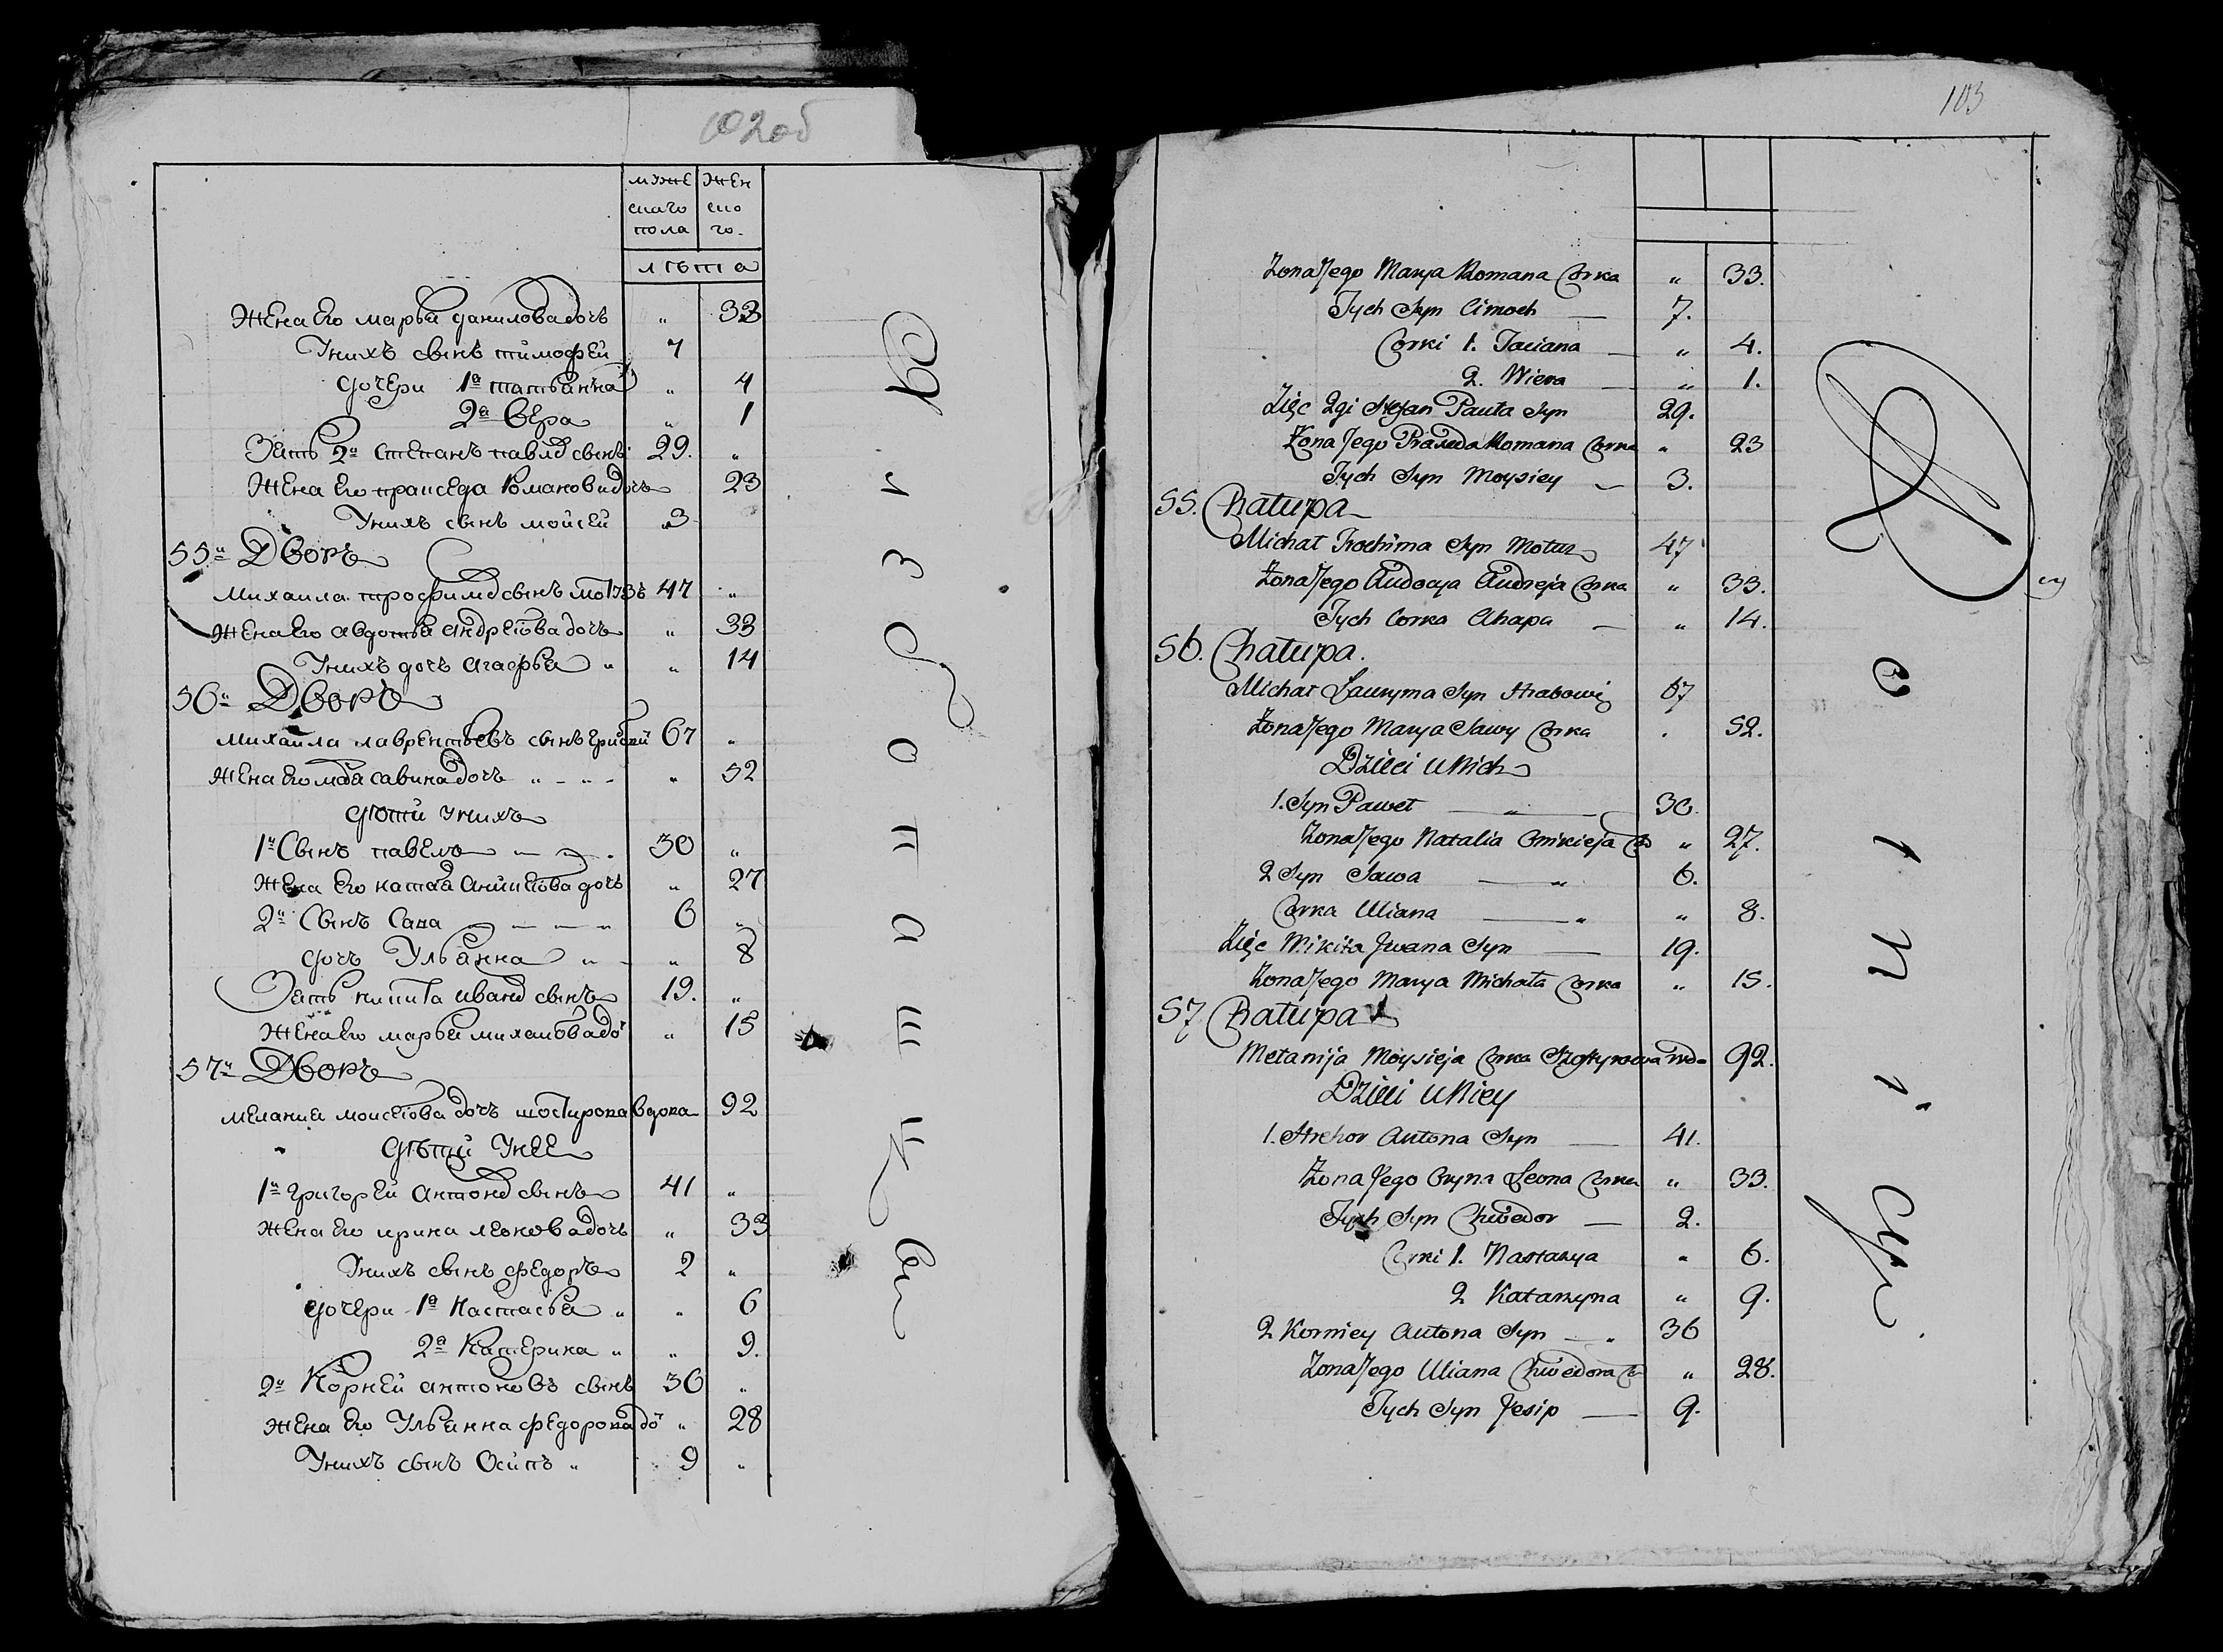 102об
мȣже жен
скаго ско
пола го.
лѣта
Жена его марья данилова дочь „ 33
Унихъ сынъ тимофей 7
дочери 1а татьянна „ 4
2а вера „ 1
Зять 2й степанъ павл сынъ 29. „
Жена его праиседа романова дочь 23
Унихъ сынъ мойсей 3
55й Дворъ
михаила трофим сынъ мотȣзъ 47 „
Жена его авдотья андреева дочь „ 33
Унихъ дочь агафья „ „ 14
56й Дворъ
михайла лаврентьевъ сынъ 67 „
Жена его савина дочь „ - „ - „ 52
дѣти унихъ
1й Сынъ павелъ 30 „
Жена его дочь „ 27
2й Сынъ Сава 6 „
дочь Ульянна „ „ 8
Зять никита иван сынъ 19. „
Жена его марья михаилова до „ 15
57й Дворъ
мелания моисеова дочь шостирова вдова 92
дѣти Унее
1й григорей антон сынъ 41 „
Жена его ирина леонова дочь „ 33
Унихъ сынъ федоръ 2 „
дочери 1а Настасья „ „ 6
2а Катерина „ „ 9.
2й Корней антоновъ сынъ 36 „
Жена его Ульянна федорова до „ 28
Унихъ сынъ Осипъ „ 9 „
103
Żona Jego Marya Romana Corka „ 33.
Tych Syn Cimoch — 7.
Corki 1. Taciana — „ 4.
2. Wiera — „ 1.
Zięc 2gi Stefan Pauła Syn 29.
Żona Jego Praxeda Romana Corka „ 23
Tych Syn Moysiey — 3.
55. Chałupa
Michał Trochima Syn Motuz 47
Żona Jego Audocya Andreja Corka „ 33.
Tych Corka Ahapa — „ 14.
56. Chałupa.
Michał Lauryna Syn 67
Żona Jego Marya Sawy Corka . 52.
Dzieci u Nich
1. Syn Paweł — „ — 30.
Żona Jego Natalia Onikieja Co „ 27.
2 Syn Sawa — „ 6.
Corka Uliana — „ „ 8.
Zięc Mikita Jwana Syn — 19.
Żona Jego Marya Michała Corka „ 15.
57. Chałupa
Mełanija Moysieja Corka Szostyrowa wdo= 92.
Dzieci u Niey
1. Hrehor Antona Syn — 41.
Żona Jego Oryna Leona Corka „ 33.
Tych Syn Chwedor — 2.
Corki 1. Nastazya „ 6.
2 Katarzyna „ 9.
2 Korniey Antona Syn — „ 36
Żona Jego Uliana Chwedora Co „ 28.
Tych Syn Jesip — 9.